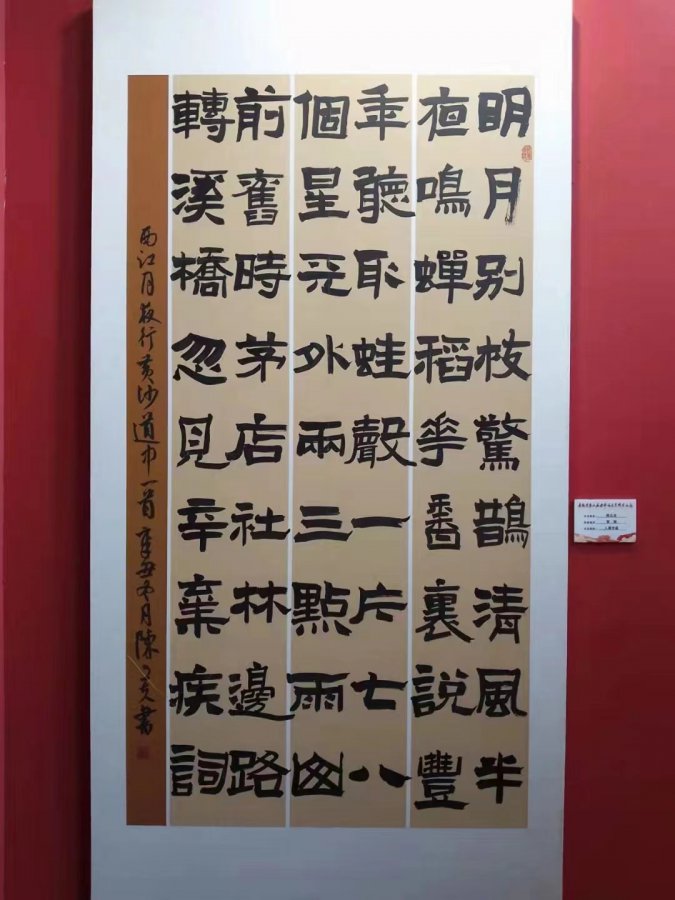 明月别枝驚鵲清風半
夜鳴蟬稻華香裏說豐
年聽取蛙聲一片七八
個星天外兩三點雨山
前舊時茅店社林邊路
轉溪橋忽見辛棄疾詞
西江月夜行黄沙道中一首辛丑冬月陳書